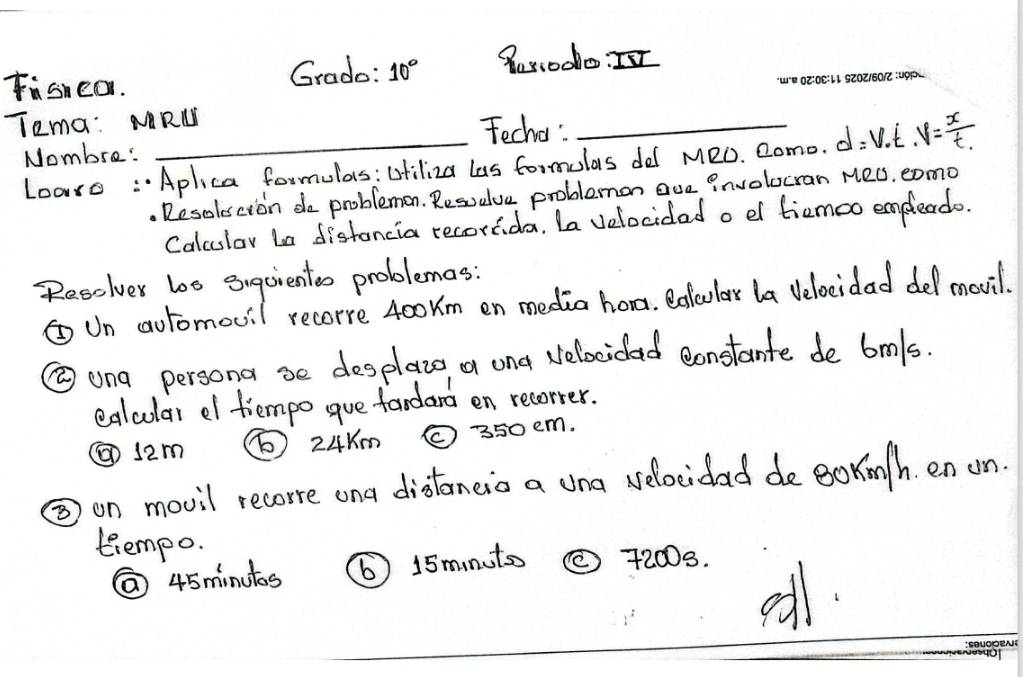 Física.
Grado: 10°
Periodo: IV
ción: 2/09/2025 11:30:20 a.m.
Tema: MRU
Nombre: ____________ Fecha: ____________
Logro :• Aplica formulas: Utiliza las formulas del MRU. Como. d=V.t. V=x/t.
• Resolución de problemas. Resuelve problemas que involucran MRU. como
Calcular la distancia recorrida, la velocidad o el tiempo empleado.
Resolver los siguientes problemas:
① Un automovil recorre 400Km en media hora. Calcular la velocidad del movil.
② Una persona se desplaza a una velocidad constante de 6m/s.
calcular el tiempo que tardará en recorrer.
ⓐ 12m ⓑ 24Km ⓒ 350cm.
③ Un movil recorre una distancia a una velocidad de 80Km/h. en un.
tiempo.
ⓐ 45minutos ⓑ 15minutos ⓒ 7200s.